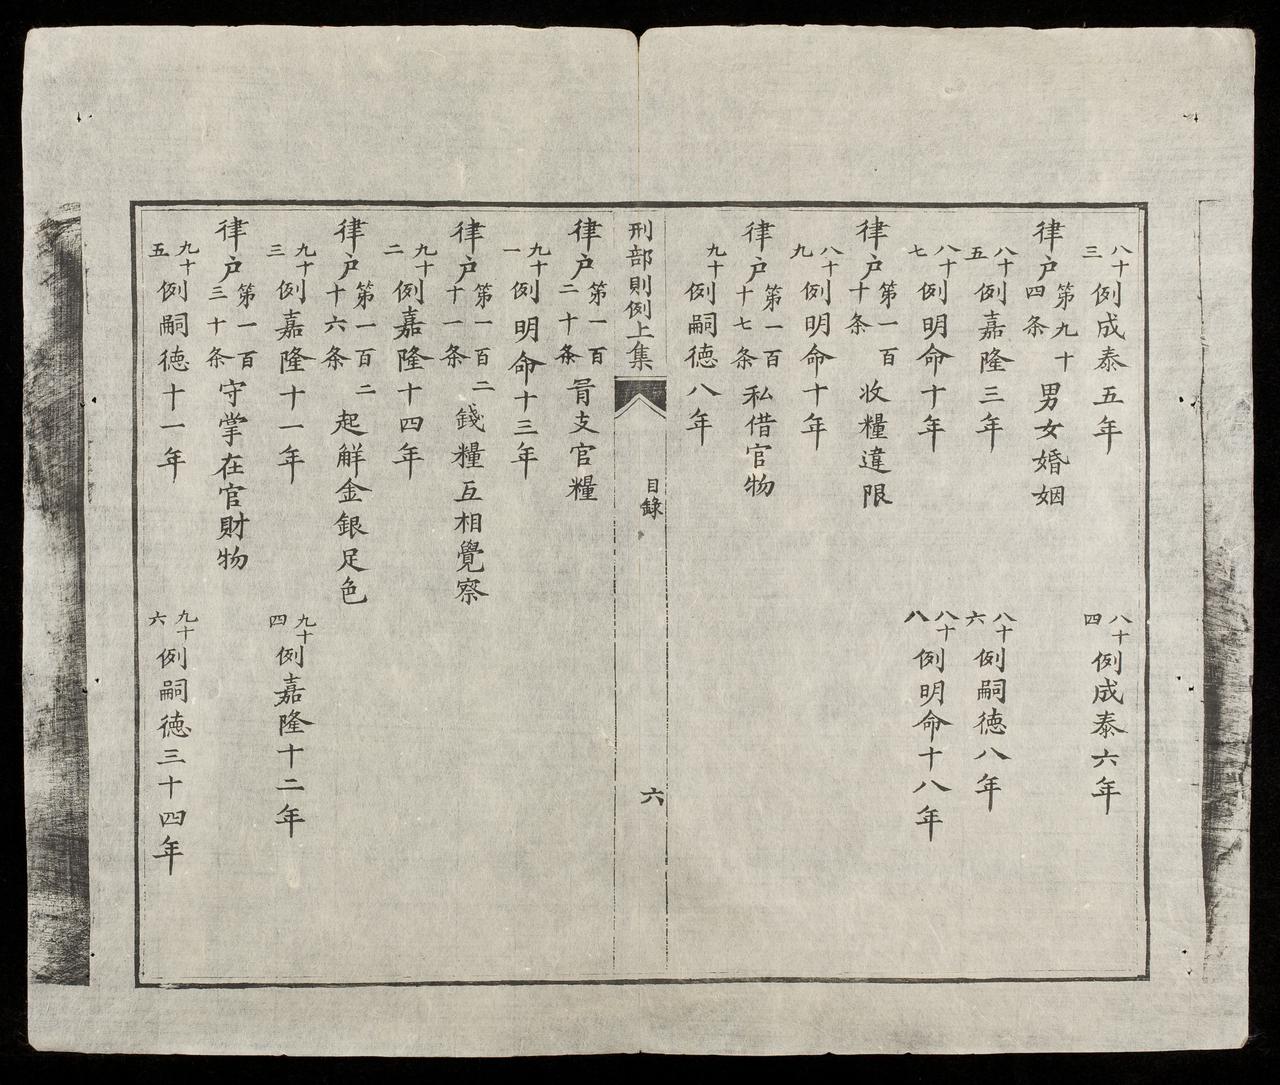 八十三例成泰五年　八十四例成泰六年
律户第九十四条男女婚姻
八十五例嘉隆三年　八十六例嗣德八年
八十七例明命十年　八十八例明命十八年
律户第一百十条收糧違限
八十九例明命十年
律户第一百十七条私借官物
九十例嗣徳八年
刑部則例上集　目錄　六
律户第一百二十条冐支官糧
九十一例明命十三年
律户第一百二十一条錢糧互相覺察
九十二例嘉隆十四年
律户第一百二十六条起解金銀足色
九十三例嘉隆十一年　九十四例嘉隆十二年
律户第一百三十条守掌在官財物
九十五例嗣徳十一年　九十六例嗣徳三十四年